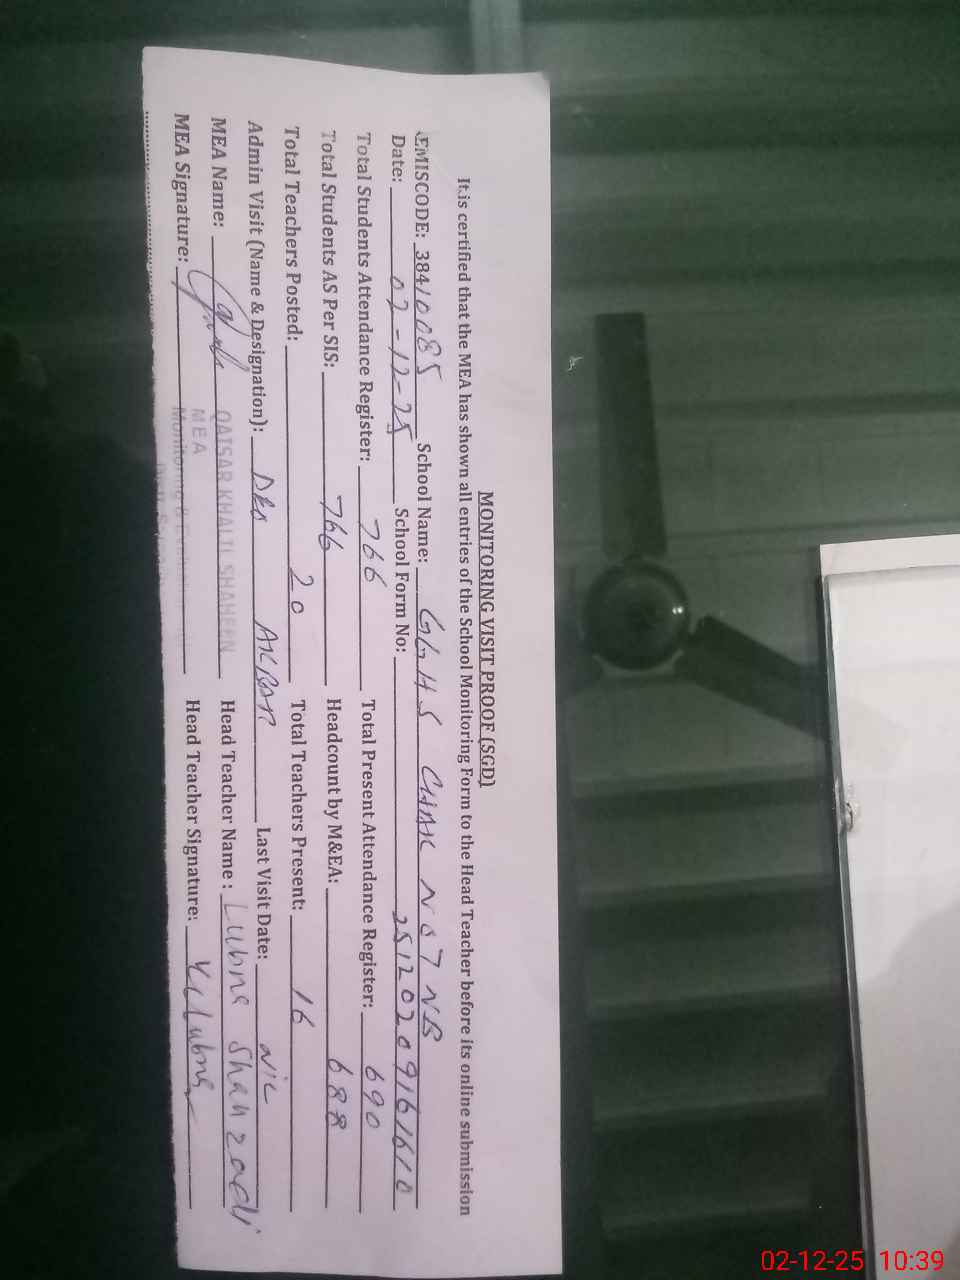 MONITORING VISIT PROOF (SGD)
It.is certified that the MEA has shown all entries of the School Monitoring Form to the Head Teacher before its online submission
EMISCODE: 38410085 School Name: GGHS CHAK NO 7 NB
Date: 02-12-25 School Form No: 25120209161610
Total Students Attendance Register: 766 Total Present Attendance Register: 690
Total Students AS Per SIS: 766 Headcount by M&EA: 688
Total Teachers Posted: 20 Total Teachers Present: 16
Admin Visit (Name & Designation): DEO AKRAM Last Visit Date: NIL
MEA Name: QAISAR KHALIL SHAHEEN Head Teacher Name: Lubna Shahzadi
MEA Signature: MEA Head Teacher Signature: Lubna
Monitoring &
02-12-25 10:39